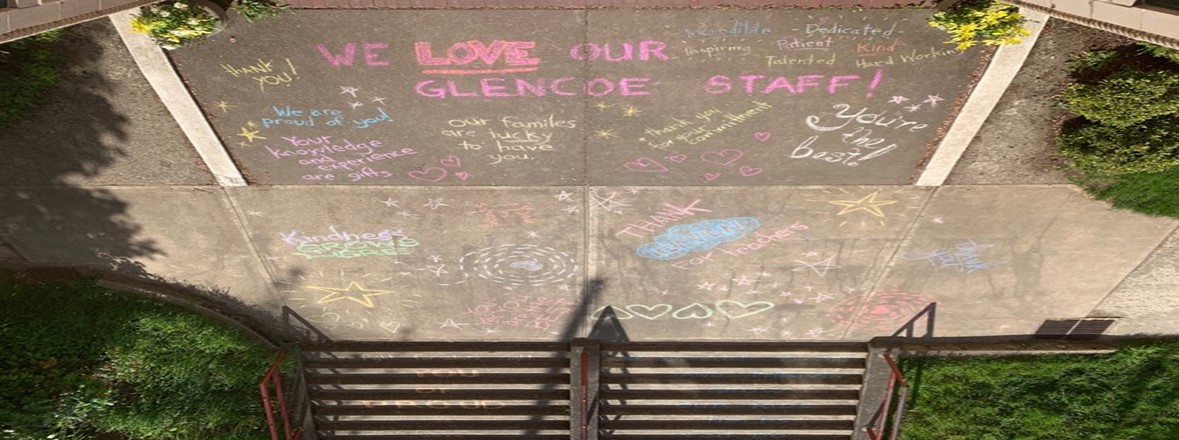 WE LOVE OUR
GLENCOE STAFF!
THANK
YOU!
We are
proud of you!
Your
Knowledge
and experience
are gifts
our familes
are lucky
to have
you.
Incredible - Dedicated -
Inspiring Patient Kind
Talented Hard Working
thank you
for your
commitment
You're
the
best!
Kindness
THANK
FOR TEACHERS
YOU